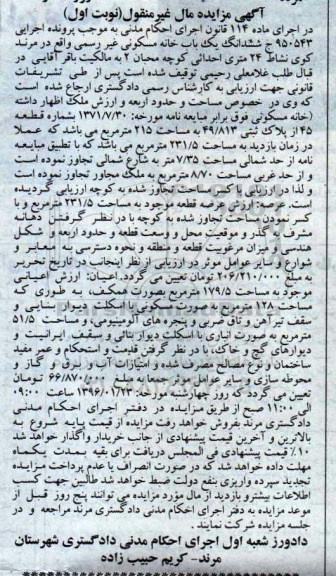 آگهی مزایده مال غیرمنقول(نوبت اول)
در اجرای ماده ۱۱۴ قانون اجرای احکام مدنی به موجب پرونده اجرایی
۹۵۰۵۴۳ ج ششدانگ یک باب خانه مسکونی غیر رسمی واقع در مرند
کوی نشاط ۲۴ متری احداثی کوچه محبان ۲ به مالکیت باقر آقایی در
قبال طلب غلامعلی رحیمی توقیف شده است پس از طی تشریفات
قانونی جهت ارزیابی به کارشناس رسمی دادگستری ارجاع شده است
که وی در خصوص مساحت و حدود اربعه و ارزش ملک اظهار داشته
(خانه مسکونی فوق برابر مبایعه نامه مورخه: ۱۳۷۱/۷/۳۰ بشماره قطعه
۴۵ از پلاک ثبتی ۴۹/۸۱۳ به مساحت ۲۱۵ مترمربع می باشد که عملا
در زمان بازدید به مساحت ۲۳۱/۵ مترمربع می باشد که با تطبیق مبایعه
نامه از حد شمالی مساحت ۷/۳۵ متر به شارع شمالی تجاوز نموده است
و از حد غربی مساحت ۸/۷۰ مترمربع به ملک مجاور تجاوز نموده است
و لذا در ارزیابی با کسر مساحت تجاوز شده به کوچه ارزیابی گردیده
است. عرصه: ارزش عرصه قطعه موجود به مساحت ۲۳۱/۵ مترمربع و با
کسر نمودن مساحت تجاوز شده به کوچه با در نظر گرفتن دهانه
مشرف به گذر و موقعیت محل و وسعت قطعه و حدود اربعه و شکل
هندسی و میزان مرغوبیت قطعه و منطقه و نحوه دسترسی به معابر و
شوارع و سایر عوامل موثر در ارزیابی از نظر اینجانب در تاریخ تحریر
به مبلغ ۲۰۶/۲۱۰/۰۰۰ تومان تعیین می گردد. اعیان: ارزش اعیانی
موجود به مساحت ۱۷۹/۵ مترمربع بصورت همکف، به طوری که
مساحت ۱۲۸ مترمربع به صورت مسکونی با اسکلت دیوار بنایی و
سقف تیرآهن و تاق ضربی و پنجره های آلومینیومی، و مساحت ۵۱/۵
مترمربع به صورت انباری با اسکلت دیوار بنائی و سقف ایرانیت و
دیوارهای گچ و خاک، با در نظر گرفتن قدمت و استحکام و عمر مفید
ساختمان و نوع مصالح مصرف شده و امتیازات آب و برق و گاز و
محوطه سازی و سایر عوامل موثر جمعا به مبلغ ۶۶/۸۷۰/۰۰۰ تومان
تعیین می گردد که روز چهارشنبه مورخه: ۱۳۹۶/۰۱/۲۳ ساعت ۰۹:۰۰
الی ۱۱:۰۰ صبح از طریق مزایده در دفتر اجرای احکام مدنی
دادگستری مرند بفروش خواهد رفت مزایده از قیمت پایه شروع به
بالاترین و آخرین قیمت پیشنهادی از جانب خریدار واگذار خواهد شد
۱۰٪ قیمت پیشنهادی فی المجلس دریافت برای بقیه بمدت یکماه
مهلت داده خواهد شد که در صورت انصراف یا عدم پرداخت مزایده
تجدید سپرده واریزی بنفع دولت ضبط خواهد شد طالبین جهت کسب
اطلاعات بیشتر و بازدید از مال مورد مزایده می توانند پنج روز قبل از
موعد مزایده به دفتر اجرای احکام مدنی دادگستری مرند مراجعه و در
جلسه مزایده شرکت نمایند.
دادورز شعبه اول اجرای احکام مدنی دادگستری شهرستان
مرند- کریم حبیب زاده